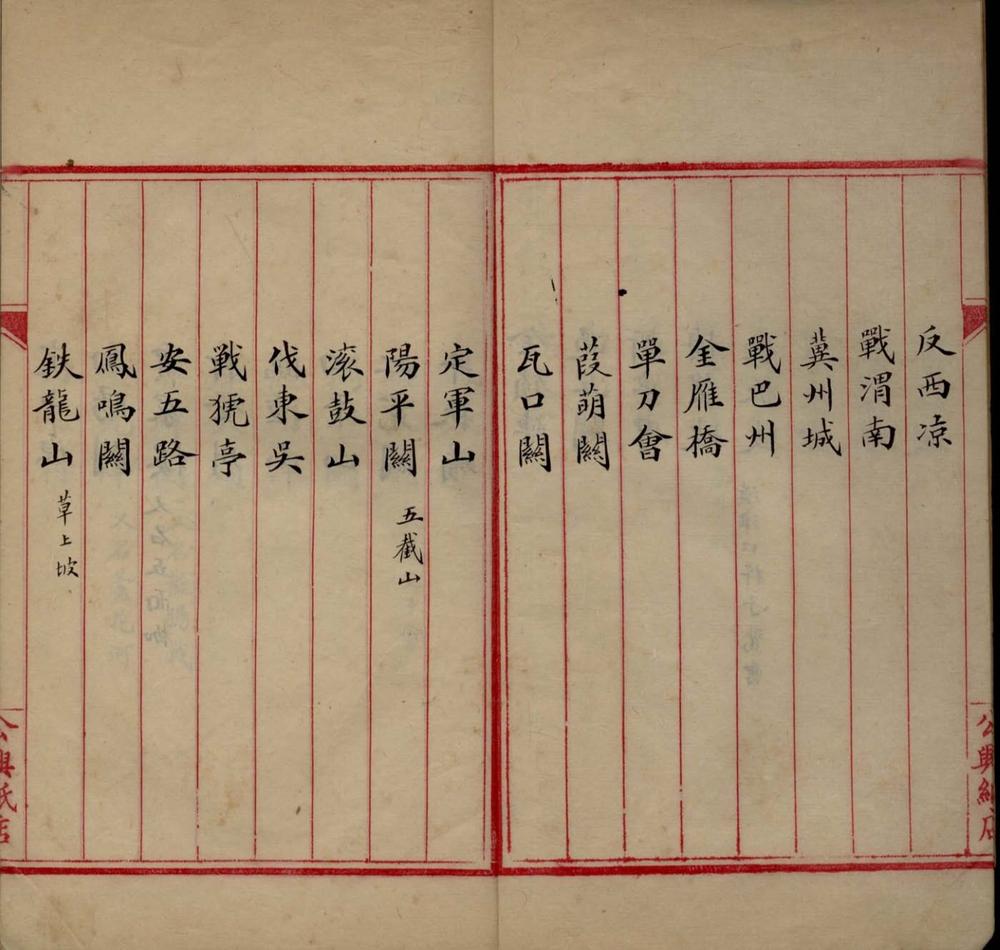 反西凉
戰渭南
兾州城
戰巴州
金雁橋
單刀會
葭萌關
瓦口關
定軍山
陽平關 五截山
滚鼓山
伐東吳
戰猇亭
安五路
鳳鳴關
鉄龍山 草上坡
公興紙店
公興紙店